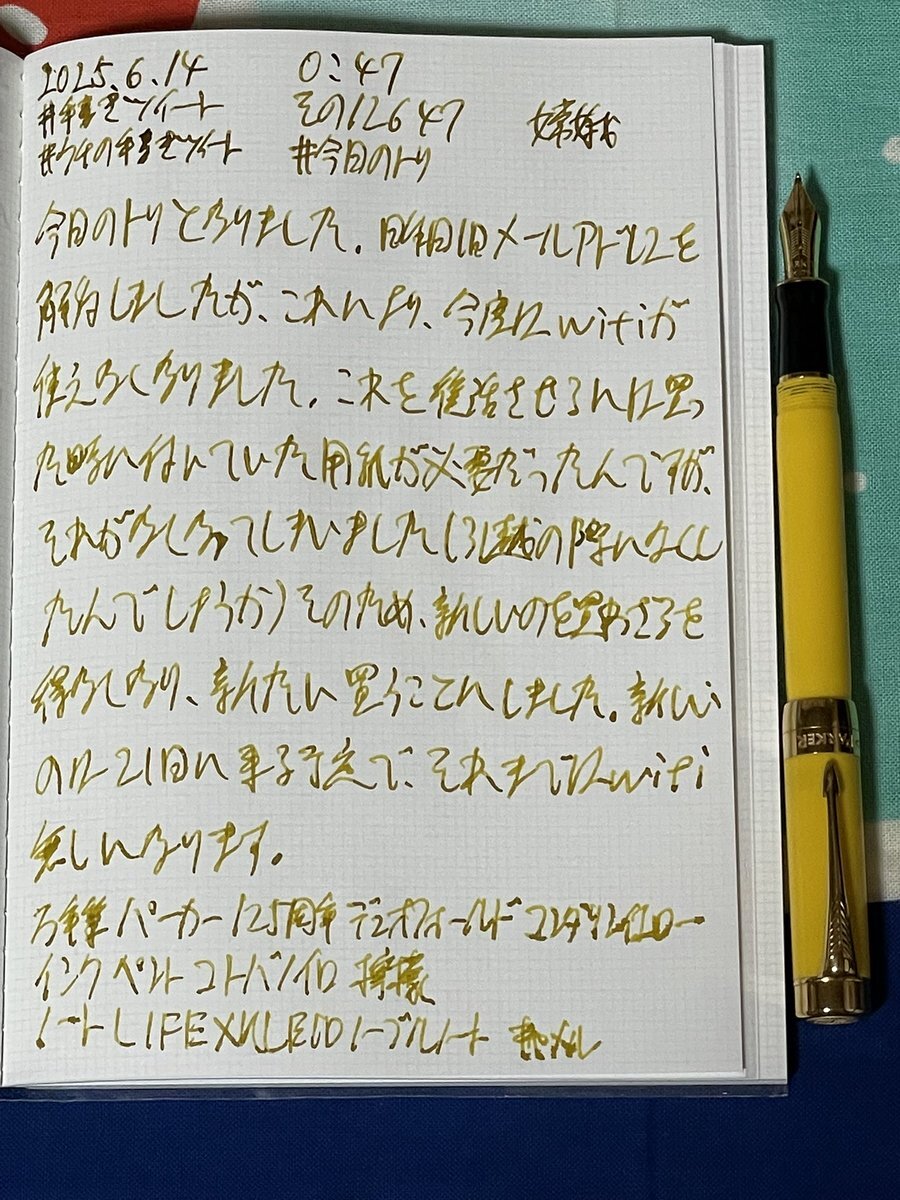 2025.6.14 0:47
#手書きツイート その12647
#ウチの手書きツイート #今日のトリ
今日のトリとなりました。昨日旧メールアドレスを
解約しましたが、これにより、今度はwifiが
使えなくなりました。これを復活させるには買っ
た時に付いていた用紙が必要だったんですが、
それがなくなってしまいました(引越の際になくし
たんでしょうか)そのため、新しいのを買わざるを
得なくなり、新たに買うことにしました。新しい
のは21日に来る予定で、それまではwifi
無しになります。
万年筆 パーカー125周年 デュオフォールド
インク ペント コトバノイロ 檸檬
ノート LIFE ノーブルノート
PARKER